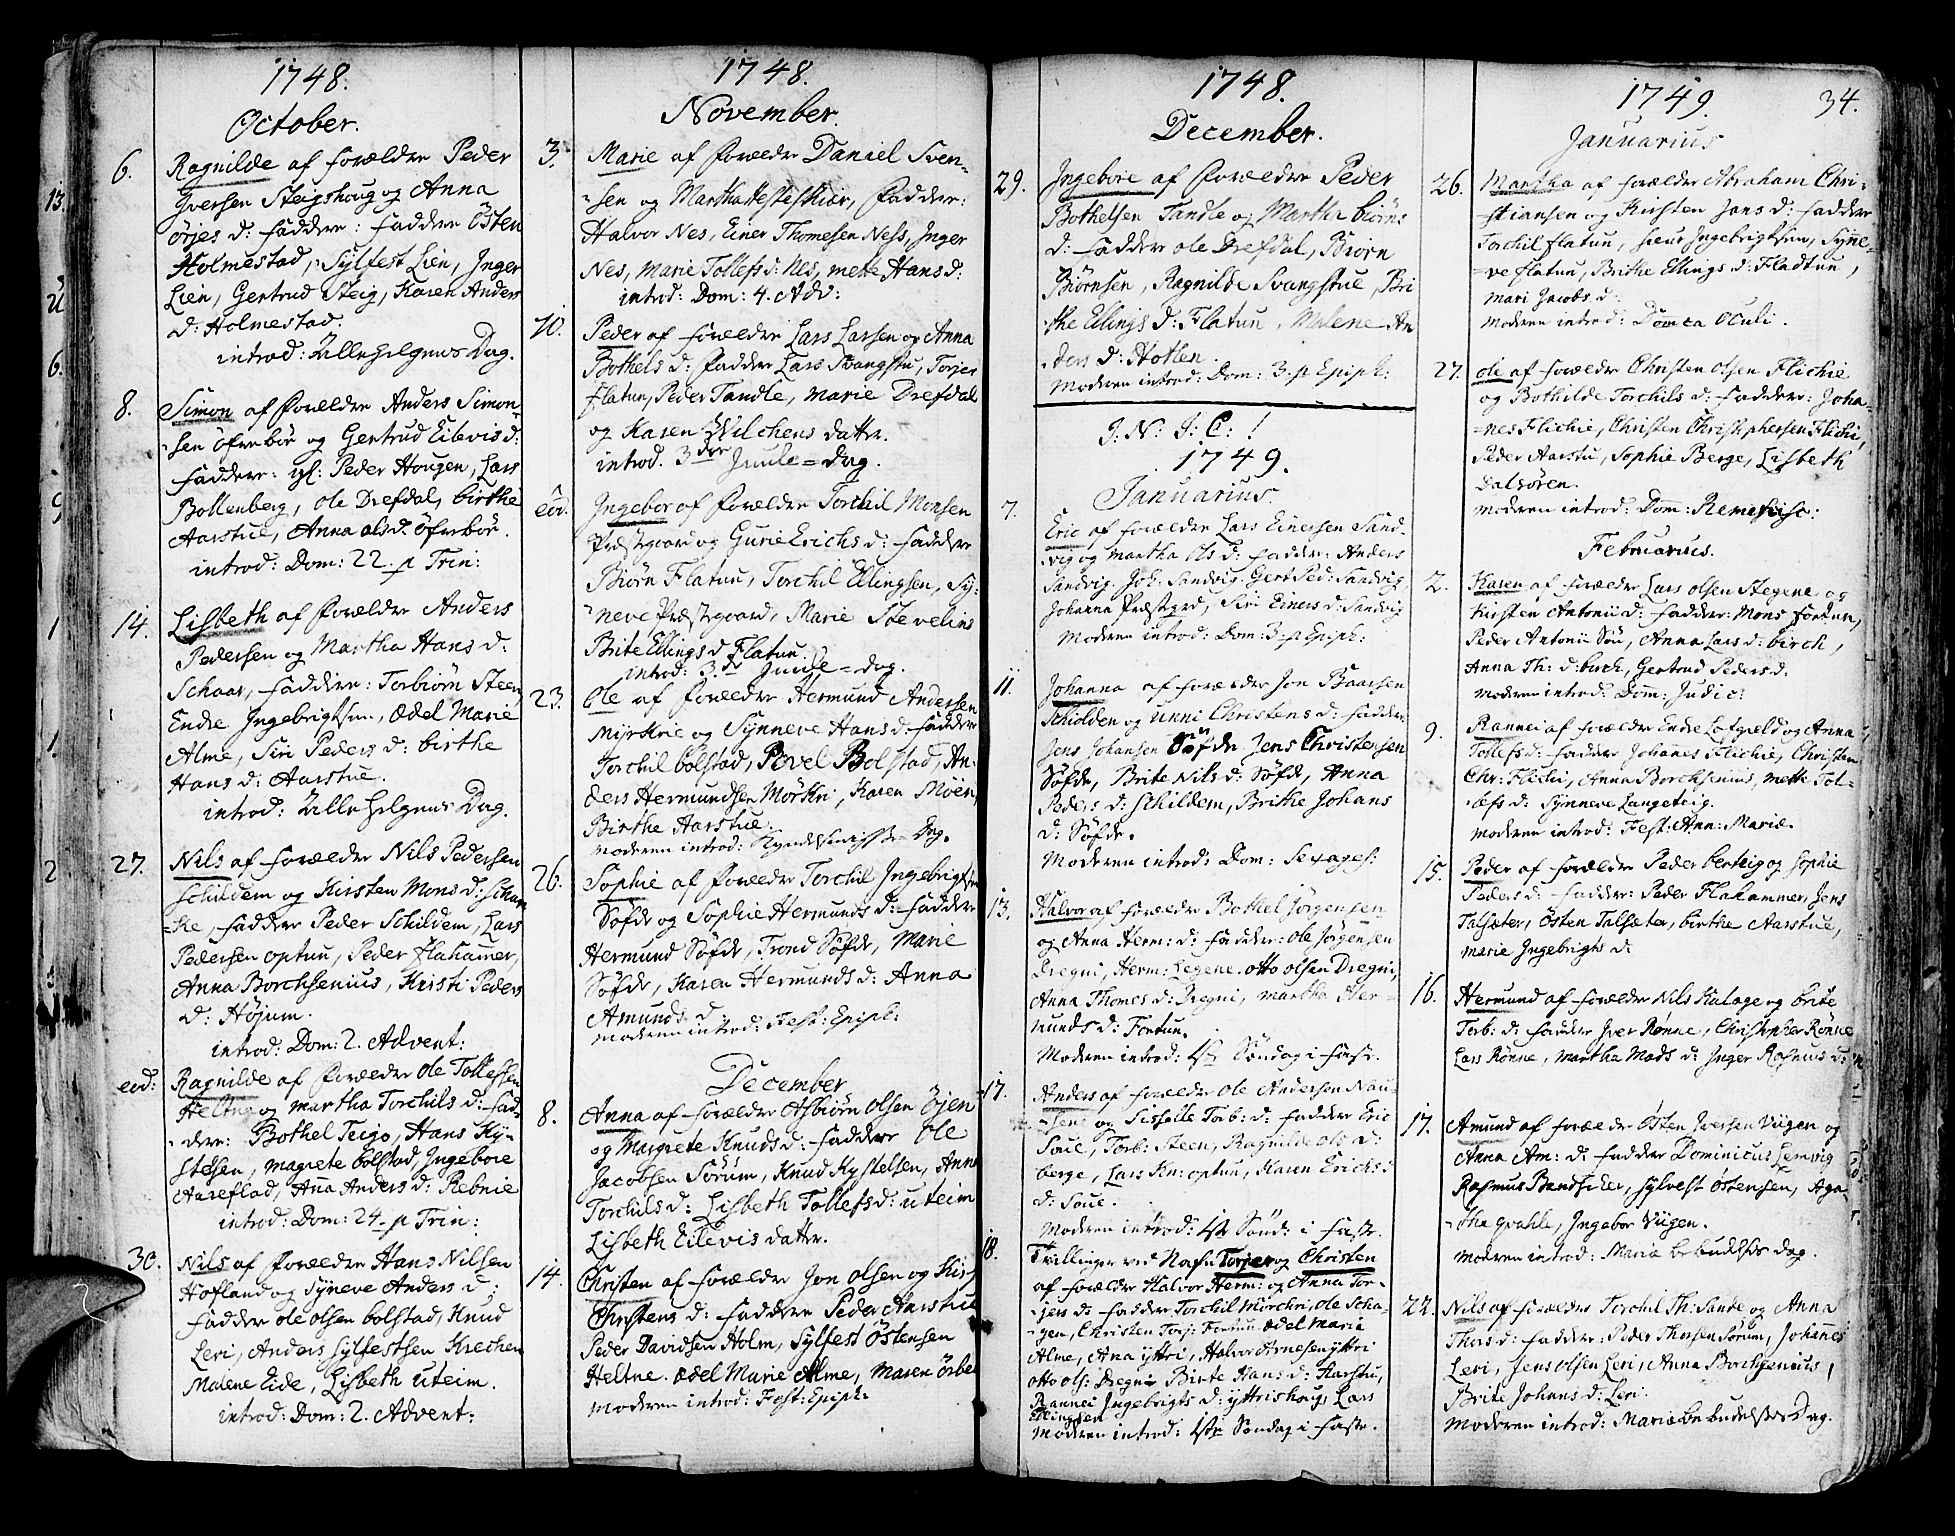 1748.
October.
6. Ragnilde af Forældre Peder
Iversen Steigshoug og Anna
Örjes d: Faddere: Faddere Östen
Holmestad, Sylfest Lien, Inger
Lien, Gertrud Steig, Karen Anders
d: Holmestad.
introd: Allehelgens Dag.
8. Simon af Forældre Anders Simon-
sen Öfrebör og Gertrud Eilevis d:
Faddere: gl: Peder Hougen, Lars
Bollenberg, Ole Drefdal, birthe
Aarstue, Anna ols d. Öfrebör.
introd: Dom: 22. p Trin:
14. Lisbeth af Forældre Anders
Pedersen og Martha Hans d:
Schaar, Faddere: Torbiörn Steen,
Endre Ingebrigtsen, Ædel Marie
Alme, Siri Peders d: birthe
Hans d: Aarstue.
introd: Allehelgens Dag.
27. Nils af Forældre Nils Pedersen
Schildem og Kirsten Mons d:
Faddere Peder Schildem, Lars
Pedersen optun, Peder Flahamer,
Anna Borchsenius, Kristi Peders
d: Höjum.
introd: Dom: 2. Advent:
eod: Ragnilde af Forældre Ole Tollefsen
Heltne og Martha Torchils d: Fad-
dere: Bothel Teigo, Hans Ky-
stesen, Magrete bolstad, Ingebore
Aareflad, Aña Anders d: Rebnie
introd: Dom: 24. p Trin:
30. Nils af Forældre Hans Nilsen
Hofland og Syneve Anders d:
Faddere Ole olsen bolstad, Knud
Leri, Anders Sylfestsen Krechen
Malene Eide, Lisbeth Uteim.
introd: Dom: 2. Advent:
1748.
November.
3. Marie af Forældre Daniel Sven-
sen og Martha Hesteskiær, Faddere:
Halvor Nes, Einer Thomesen Ness, Inger
Nes, Marie Tollefs d: Nes, mette Hans d:
introd: Dom: 4. Adv:
10. Peder af Forældre Lars Larsen og Anna
Bothels d: Faddere Lars Svangstu, Torjer
Flatun, Peder Tandle, Marie Drefdal
og Karen Wilchens datter.
introd. 3die Juule-dag.
eod. Ingebor af Forældre Torchil Monsen
Præstgaard og Gurie Erichs d: Faddere
Biörn Flatun, Torchil Ellingsen, Sy-
neve Præstgaard, Marie Stevelins
Brite Ellings d Flatun.
introd: 3.die Juule-dag.
23. Ole af Forældre Hermund Andersen
Myrkrie og Synneve Hans d: Faddere
Torchil bolstad, Povel Bolstad, An-
ders Hermundsen Mörkri, Karen Möen,
Birthe Aarstue.
moderen introd: Kyndelsmisse-Dag.
26. Sophie af Forældre Torchil Ingebrigtsen
Söfde og Sophie Hermunds d: Faddere
Hermund Söfde, Trond Söfde, Marie
Söfde, Karen Hermunds d: Anna
Amunds d:
moderen introd: Fest: Epiph:
December
8. Anna af Forældre Asbiörn olsen Öjen
og Magrete Knuds d: Faddere Ole
Jacobsen Sörum, Knud Kystelsen, Anna
Torchils d: Lisbeth Tollefs d: uteim
Lisbeth Eilevis datter.
14. Christen af Forældre Jon olsen og
Christens d: Faddere Peder Aarstue
Peder Davidsen Holm, Sylfest Östensen
Heltne. Ædel Marie Alme, Maren örbe
moderen introd: Fest: Epiph:
1748.
December.
29. Ingebore af Forældre Peder
Bothelsen Tandle og Martha biörns
d: Faddere Ole Drefdal, Biörn
Biörnsen, Ragnilde Svangstue, Bri
the Ellings d: Flatun, Malene An
ders d: Hotlen.
Moderen introd: Dom: 3. p Epiph:
I: N: I: C: !
1749.
Januarius.
7. Eric af Forældre Lars Einersen Sand-
vig og Martha Ols d: Faddere: Anders
Sandvig. Joh: Sandvig. Gert Ped: Sandvig,
Johanna Præstgrd, Siri Einers d: Sandvig
Moderen introd: Dom: 3. p Epiph:
11. Johanna af Forældre Jon Baarsen
Schiolden og Unni Christens d: Fadder:
Jens Johansen Söfde Jens Christensen
Söfde, Brite Nils d: Söfde, Anna
Peders d: Schildem, Brithe Johans
d: Söfde.
Moderen introd: Dom: Sexages:
13. Halvor af Forældre Bothel Jörgensen
og Anna Herm: d: Faddere: Ole Jörgensen
Dregni, Herm: Legene. Otto olsen Dregni,
Anna Thomes d: Dregni, Martha Her-
munds d: Fortun.
Moderen introd: 1ste Söndag i Faste.
17. Anders af Forældre Ole Andersen Nau-
sene og Sishelle Torb: d: Faddere Eric
Soue, Torb: Steen, Ragnilde ole d:
berge, Lars Kn: optun, Karen Erichs
d: Soue.
Moderen introd: 1ste Sönd: i Faste.
18. Tvillinger ved Nafn Torjer og Christen
af Forældre Halvor Herm: og Anna Tor-
jers d: Faddere Torchil Mörchri, Ole Scha-
gen, Christen Torj: Fortun. Ædel Maria
Alme, Ana Yttri, Halvor Arnesen Yttri
Otto ols: Dregni Birte Hans d: Aarstu,
Rannei Ingebrigts d: Yttrishoug, Lars
Ellingsen
Moderen introd: 1ste Söndag i Faste.
1749. 34.
Januarius
26. Martha af Forældre Abraham Chri-
stiansen og Kirsten Jans d: Faddere
Torchil Flatun, Siend Ingebrigtsen, Synne-
ve Flatun, Brithe Ellings d: Fladtun,
Mari Jacobs d:
Moderen introd: Domca Oculi.
27. Ole af Forældre Christen olsen Flichie
og Bothilde Torchils d: Faddere: Joha-
nes Flichie, Christen Christophersen Flichi,
Peder Aarstu, Sophie Berge, Lisbeth
Dalsören.
Moderen introd: Dom: Reminisc:
Februarius.
2. Karen af Forældre Lars olsen Stegene og
Kirsten Antonii d: Faddere: Mons Fortun,
Peder Antonii Sön, Anna Lars d: birch,
Anna Th: d: birch, Gertrud Peders d.
Moderen introd: Dom: Judic:
9. Rannei af Forældre Ende Lofgield og Anna
Tollefs d: Faddere Johanes Flichie, Christen
Chr: Flichi, Anna Borchsenius, mette Tol-
lefs d: Synneve Langeteig.
Moderen introd: Fest: Ann: Mariæ.
15. Peder af Forældre Peder berteig og Sophie
Peders d: Faddere: Peder Flahammer, Jens
Talsæter, Östen Talsæter, birthe Aarstue,
marie Ingebrigts d:
16. Hermund af Forældre Nils Kalage og brite
Torb: d: Faddere Iver Rönne, Christopher Rönne
Lars Rönne, Martha Mads d: Inger Rasmus d:
17. Amund af Forældre Östen Iversen Viigen og
Anna Am: d: Faddere Dominicus Lemvig
Rasmus Sylvest Östensen, Aga-
the Qvahle, Ingebor Viigen.
Moderen introd: Mariæ bebudelses dag.
22. Nils af Forældre Torchil Th: Sande og Anna
Thors d: Faddere: Peder Thorsen Sörum, Johannes
Leri, Jens olsen Leri, Anna Borchsenius,
Brite Johans d: Leri.
Moderen introd: Mariæ bebudelses Dag.